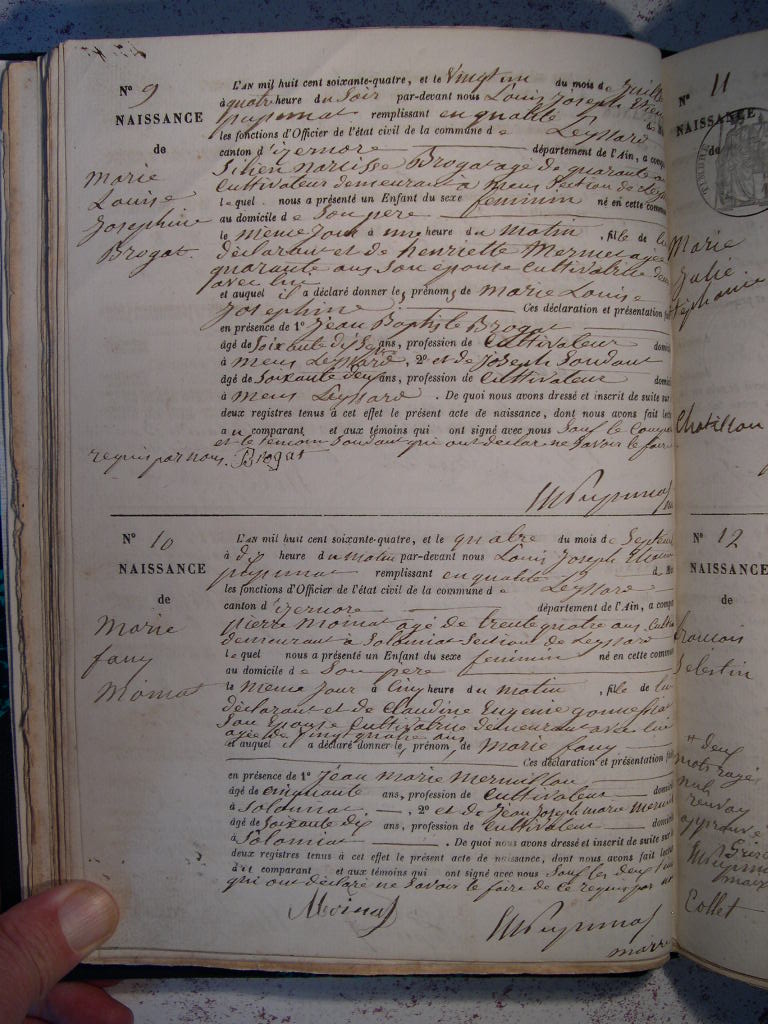 N° 9
NAISSANCE
de
Marie
Louise
Josephine
Brogat.
L'AN mil huit cent soixante-quatre, et le Vingt un du mois de Juille
à quatre heure du Soir par-devant nous Louis Joseph
remplissant en qualité de
les fonctions d'Officier de l'état civil de la commune de Leyssard
canton d'izernore département de l'Ain, a comp
Narcisse Brogat agé de quarante
Cultivateur demeurant à mens Section de Leyss
lequel nous a présenté un Enfant du sexe feminin né en cette commu
au domicile de Son père
le même jour à une heure du matin, fille de lui
déclarant et de henriette Mermet agée
quarante ans Son épouse Cultivatrice dem
avec lui
et auquel il a déclaré donner les prénoms de Marie Louise
Josephine Ces déclaration et présentation fai
en présence de 1° Jean Baptiste Brogat
âgé de Soixante dix Sept ans, profession de Cultivateur domici
à mens Leyssard, 2° et de Joseph Soudant
âgé de Soixante deux ans, profession de Cultivateur domici
à Mens Leyssard. De quoi nous avons dressé et inscrit de suite sur
deux registres tenus à cet effet le présent acte de naissance, dont nous avons fait lectu
au comparant et aux témoins qui ont signé avec nous Sauf le Comp
et le temoin Soudant qui ont déclaré ne Savoir le faire
requis par nous. Brogat
N° 10
NAISSANCE
de
Marie
fany
Momat
L'AN mil huit cent soixante-quatre, et le quatre du mois de Septem
à dix heure du matin par-devant nous Louis Joseph
remplissant en qualité de
les fonctions d'Officier de l'état civil de la commune de Leyssard
canton d'izernore département de l'Ain, a comp
pierre Momat agé de trente quatre ans Cultiv
demeurant à Solomiat Section de Leyssard
lequel nous a présenté un Enfant du sexe feminin né en cette commu
au domicile de Son père
le même jour à Cinq heure du matin, fille de lui
déclarant et de Claudine Eugenie
Son Epouse Cultivatrice demeurant avec lui
agée de vingt quatre ans
et auquel il a déclaré donner les prénoms de Marie fany
Ces déclaration et présentation fai
en présence de 1° Jean Marie Mermillon
âgé de cinquante ans, profession de Cultivateur domici
à Solomiat, 2° et de Jean Joseph marie
âgé de Soixante dix ans, profession de Cultivateur domici
à Solomiat. De quoi nous avons dressé et inscrit de suite sur
deux registres tenus à cet effet le présent acte de naissance, dont nous avons fait lectu
au comparant et aux témoins qui ont signé avec nous Sauf les deux
qui ont déclaré ne Savoir le faire de ce requis par
N° 11
NAISSANCE
de
Marie
Julie
Stéphanie
Chatillon
N° 12
NAISSANCE
de
francois
Celestin
deux
mots rayés
nul
renvoy
approuvé
Collet